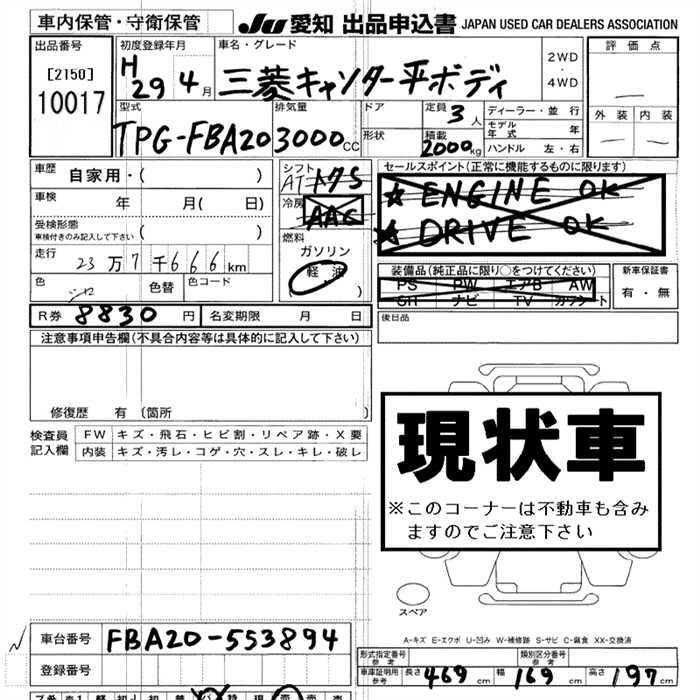 車内保管・守衛保管
JU 愛知 出品申込書 JAPAN USED CAR DEALERS ASSOCIATION
出品番号
[2150]
10017
初度登録年月
H 29 4月
車名・グレード
三菱キャンター平ボディ
2WD
・
4WD
評価点
外装 内装
型式
TPG-FBA20
排気量
3000cc
ドア
形状
定員 3人
積載 2000kg
ディーラー・並行
モデル年式 年
ハンドル 左・右
車歴 自家用・( )
車検 年 月( 日)
受検形態
車検付きのみ記入して下さい ( )
走行 23万7千666km
色 シロ 色替 色コード
シフト
AT
冷房
AAC
燃料
ガソリン
軽油
( ・ )
セールスポイント(正常に機能するものに限ります)
★ENGINE OK
★DRIVE OK
装備品(純正品に限り○をつけてください)
PS PW エアB AW
SH ナビ TV カワシート
新車保証書
有・無
R券 8830円 名変期限 月 日
後日品
注意事項申告欄(不具合内容等は具体的に記入して下さい)
修復歴 有 〔箇所 〕
検査員記入欄
FW キズ・飛石・ヒビ割・リペア跡・X要
内装 キズ・汚レ・コゲ・穴・スレ・キレ・破レ
現状車
※このコーナーは不動車も含み
ますのでご注意下さい
スペア
A-キズ E-エクボ U-凹み W-補修跡 S-サビ C-腐食 XX-交換済
車台番号 FBA20-553894
登録番号
形式指定番号
参考
類別区分番号
参考
車庫証明用
参考
長さ 469cm 幅 169cm 高さ 197cm